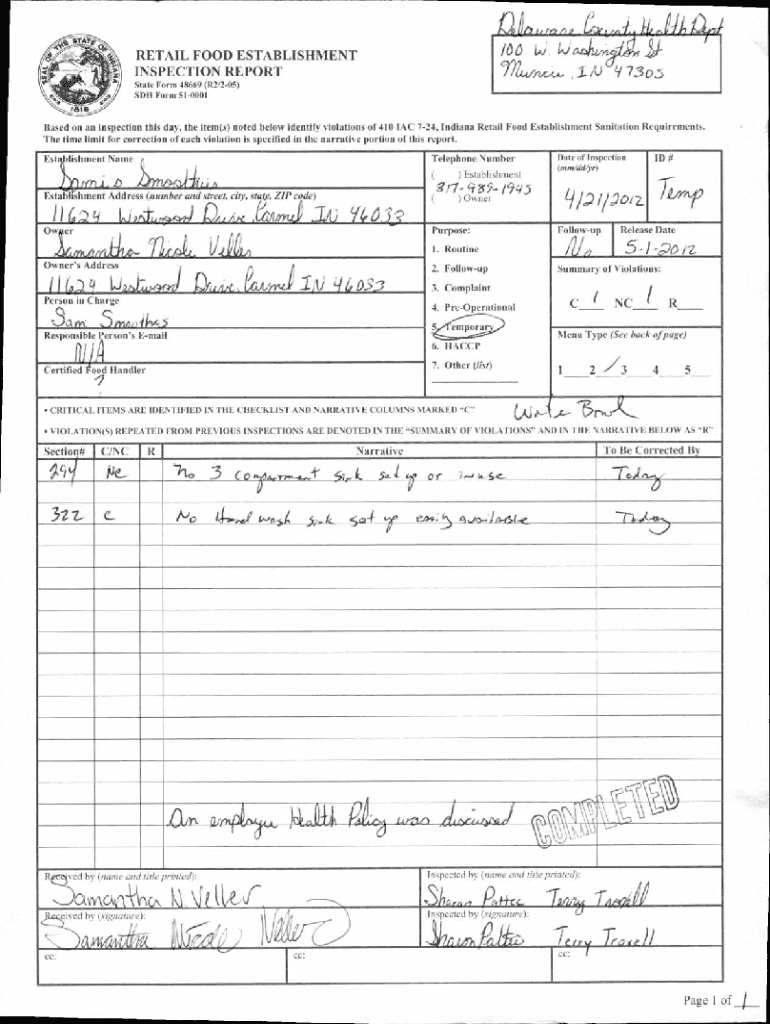 Delaware County Health Dept
100 W. Washington St
Muncie, IN 47303
SEAL OF THE STATE OF INDIANA
1816
RETAIL FOOD ESTABLISHMENT
INSPECTION REPORT
State Form 48669 (R2/2-05)
SDH Form 51-0001
Based on an inspection this day, the item(s) noted below identify violations of 410 IAC 7-24, Indiana Retail Food Establishment Sanitation Requirements.
The time limit for correction of each violation is specified in the narrative portion of this report.
Establishment Name
Sami's Smoothies
Telephone Number
( ) Establishment
317-989-1945
( ) Owner
Date of Inspection
(mm/dd/yr)
4/21/2012
ID #
Temp
Establishment Address (number and street, city, state, ZIP code)
11624 Westwood Drive, Carmel IN 46033
Owner
Samantha Nicole Veller
Purpose:
1. Routine
2. Follow-up
3. Complaint
4. Pre-Operational
5. Temporary
6. HACCP
7. Other (list)
Follow-up
No
Release Date
5-1-2012
Owner's Address
11624 Westwood Drive, Carmel IN 46033
Summary of Violations:
C 1 NC 1 R
Person in Charge
Sam Smoothas
Menu Type (See back of page)
1 2 / 3 4 5
Responsible Person's E-mail
N/A
Certified Food Handler
?
• CRITICAL ITEMS ARE IDENTIFIED IN THE CHECKLIST AND NARRATIVE COLUMNS MARKED "C"
Bowl
• VIOLATION(S) REPEATED FROM PREVIOUS INSPECTIONS ARE DENOTED IN THE "SUMMARY OF VIOLATIONS" AND IN THE NARRATIVE BELOW AS "R"
Section# C/NC R Narrative To Be Corrected By
294 NC No 3 compartment sink set up or in use Today
322 C No Hand wash sink set up easily available Today
An employee Health Policy was discussed
COMPLETED
Received by (name and title printed):
Samantha N. Veller
Inspected by (name and title printed):
Sharon Pattee Terry Troxell
Received by (signature):
Samantha Nicole Veller
Inspected by (signature):
Sharon Pattee Terry Troxell
cc: cc: cc:
Page 1 of 1